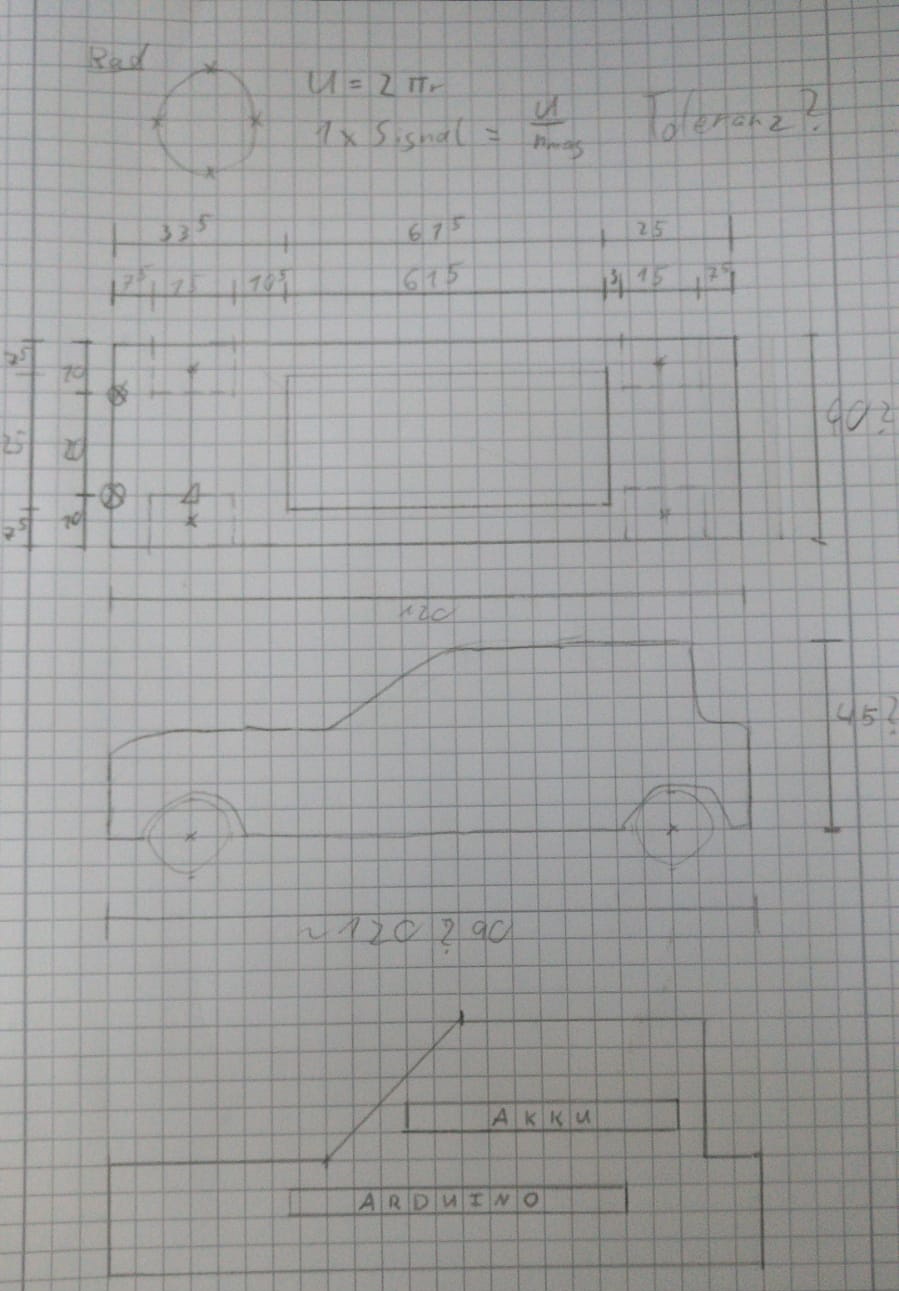 Rad
U = 2 πr
1 x Signal = U / nmag Toleranz?
33⁵ 61⁵ 25
7⁵ 15 10⁵ 61⁵ 3⁵ 15 7⁵
10
20
10
40?
120
45?
~120 ? 90
AKKU
ARDUINO